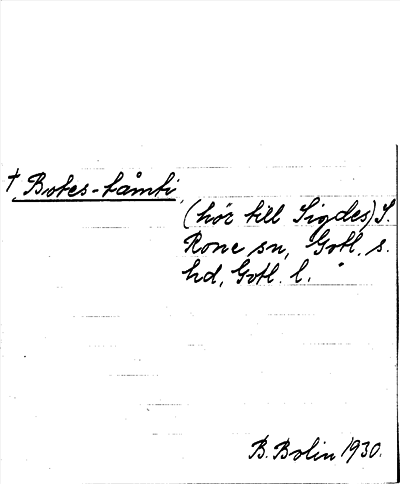 † Botes-tåmti,
(hör till Sigdes) S.
Rone sn, Gotl. s.
hd, Gotl. l.
B. Bolin 1930.